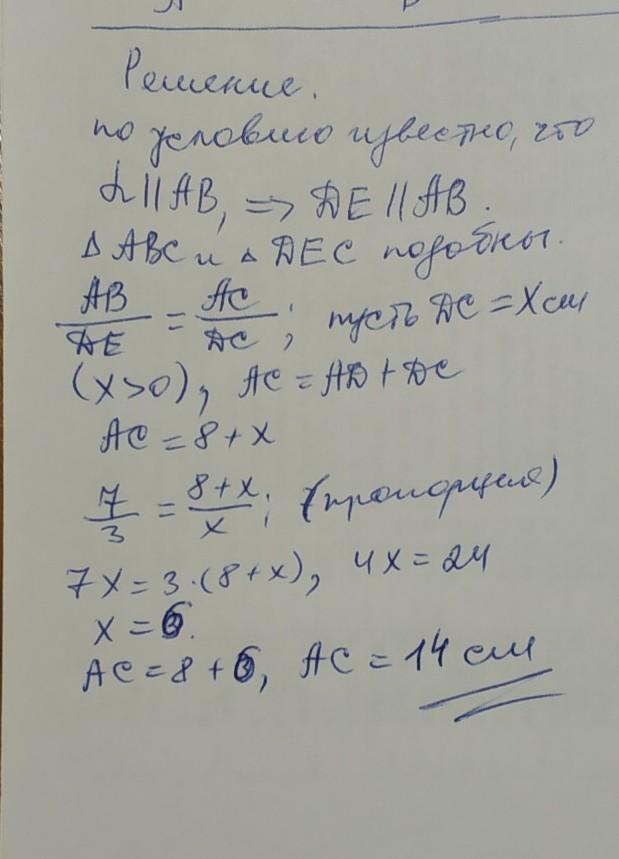 Решение.
по условию известно, что
α || AB, => DE || AB.
Δ ABC и Δ DEC подобны.
AB/DE = AC/DC; пусть DC = X см
(X>0), AC = AD + DC
AC = 8 + X
7/3 = 8+X/X; (пропорция)
7X = 3·(8+X), 4X = 24
X = 6.
AC = 8 + 6, AC = 14 см